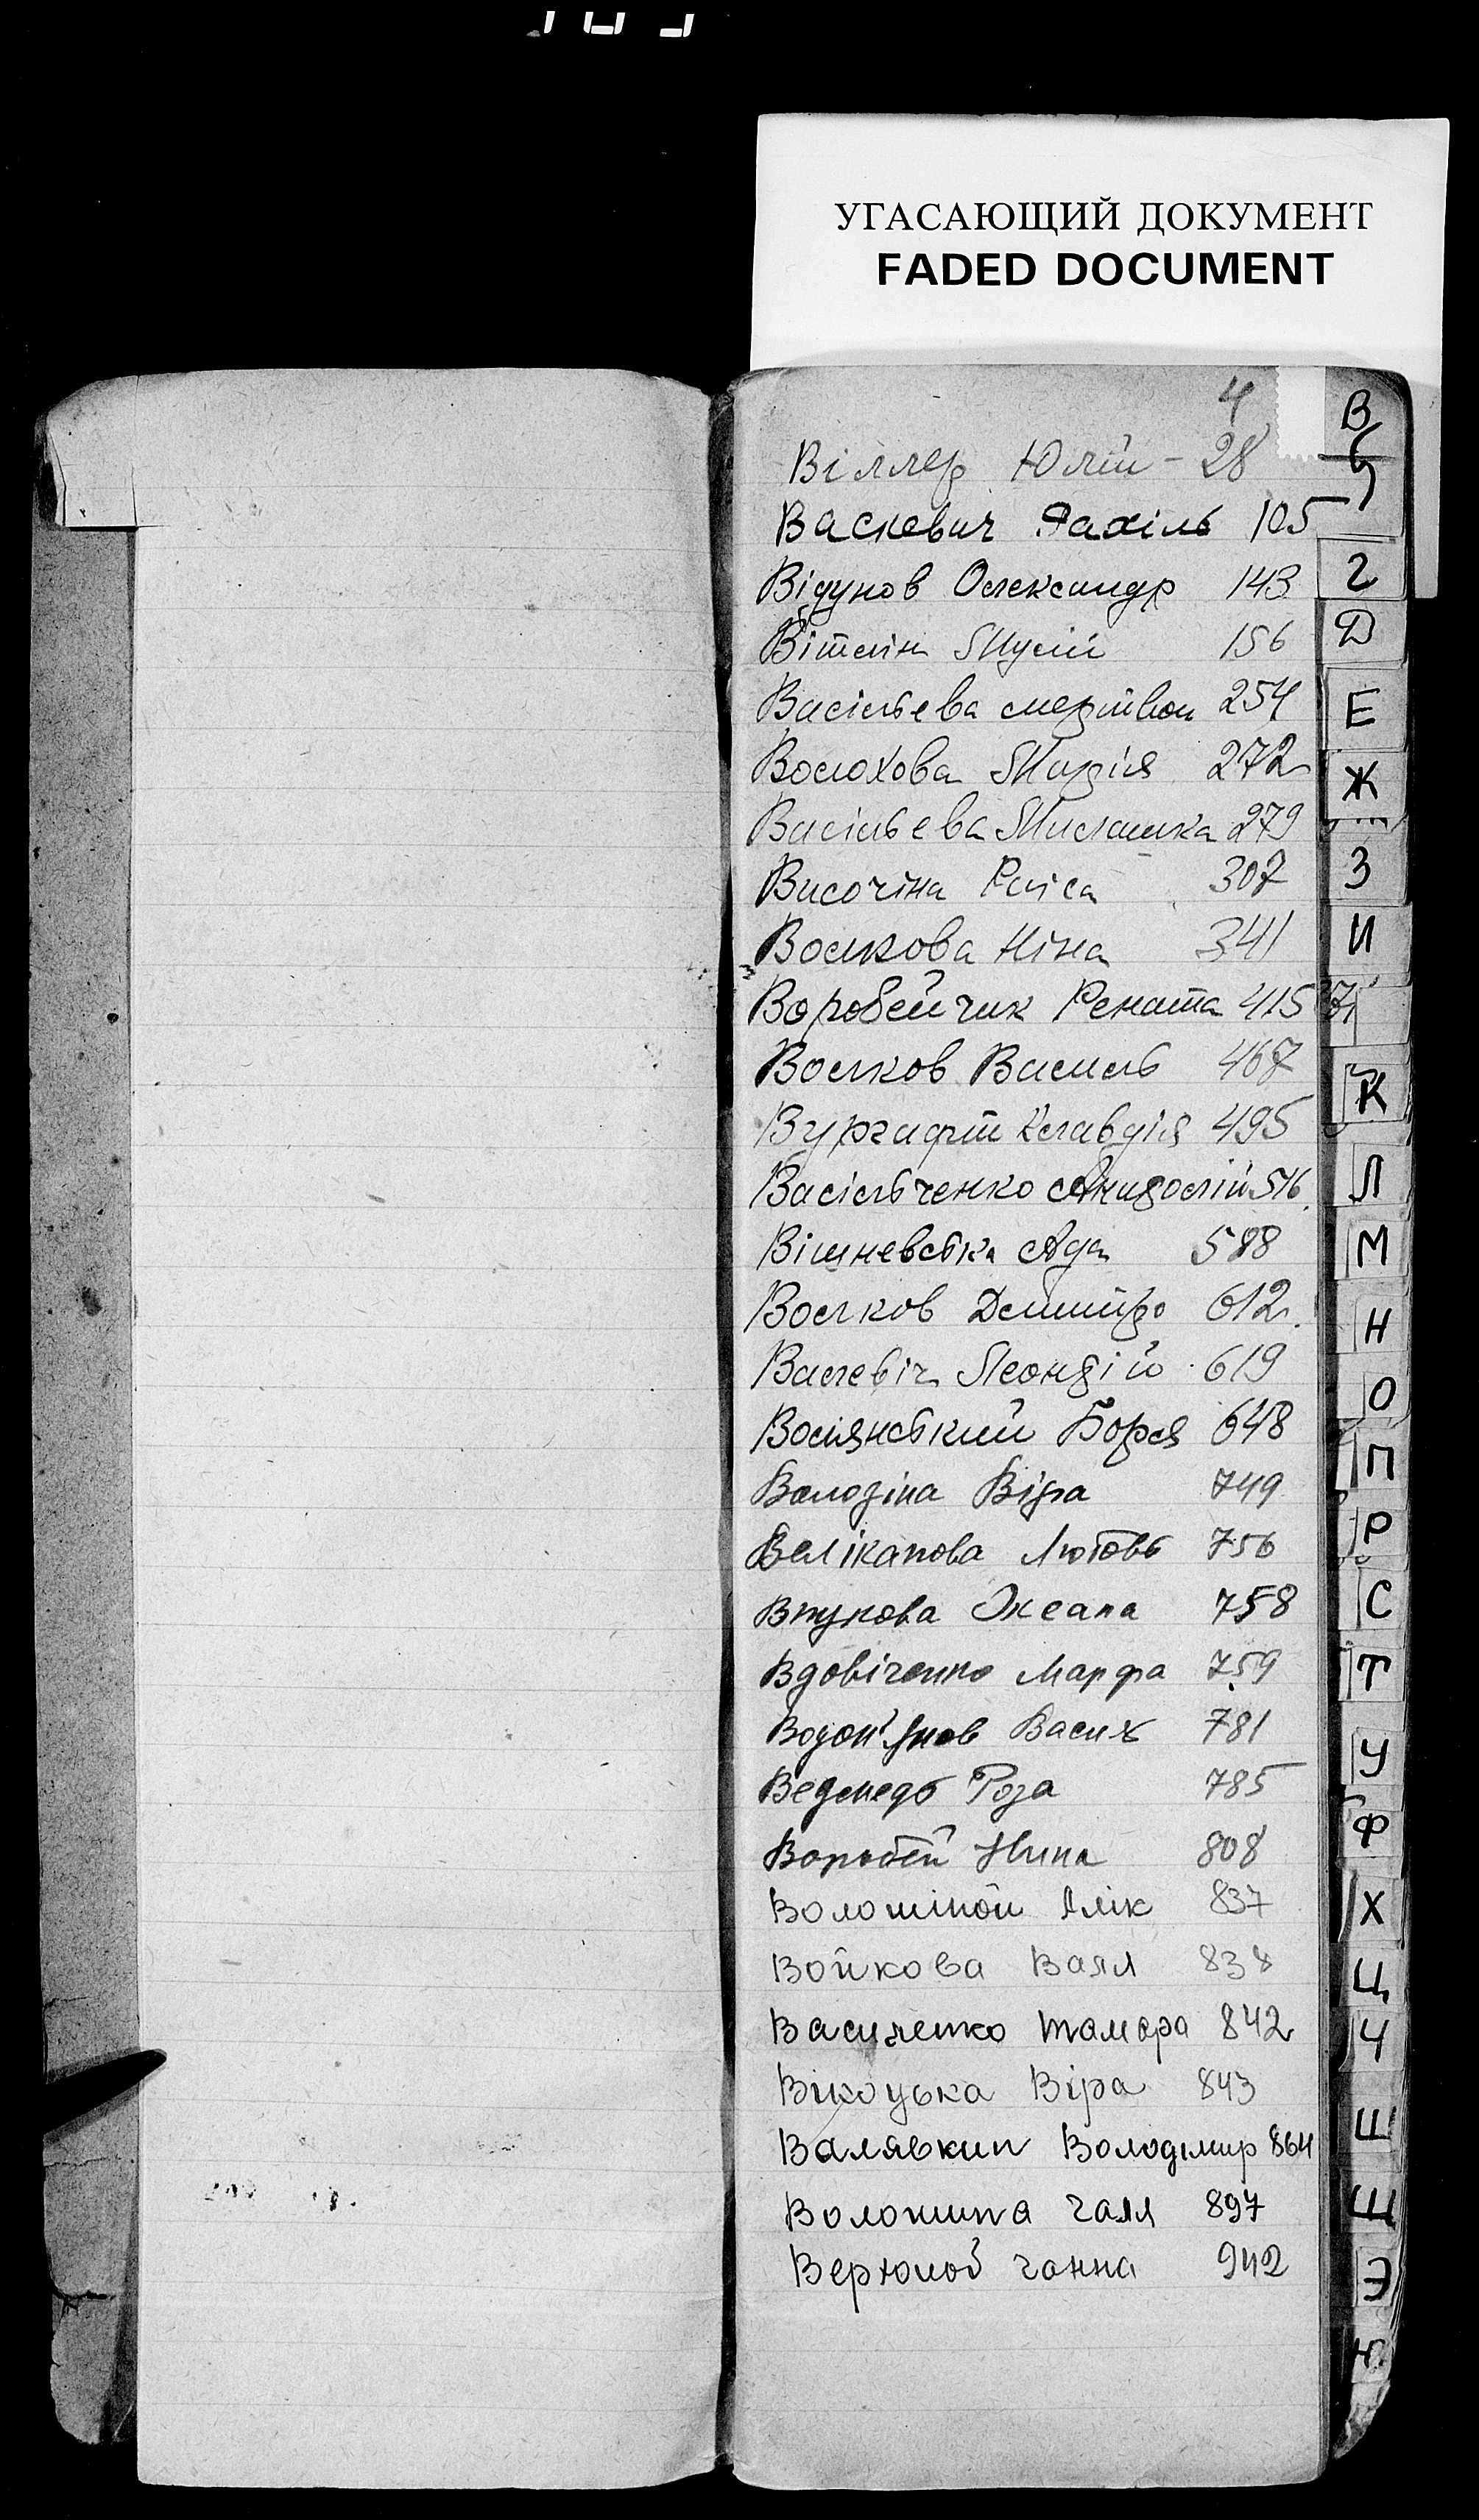 УГАСАЮЩИЙ ДОКУМЕНТ
FADED DOCUMENT
4
Віллер Юлій - 28
Васкевич Рахіль 105
Відунов Олександр 143
Вітлін Мусій 156
Васільєва 254
Волохова Марія 272
Васільєва 279
Височіна Раїса 307
Волкова Ніна 341
Воробейчик Рената 415
Волков Василь 467
Вургафт Клавдія 495
Васільченко Анатолій 516
Вішневська Ада 588
Волков Дмитро 612
Валевіч Леонтій 619
Волянський Боря 648
Володіна Віра 749
Веліканова Любовь 756
Внукова Океана 758
Вдовіченко Марфа 759
Водоп'янов Васил 781
Ведмедь Роза 785
Воробей Нина 808
Волошіной Алік 837
Войкова Валя 838
Василенко Тамара 842
Вікоцька Віра 843
Валявкин Володимир 864
Волошина Галя 897
Верхолоб Ганна 942
В
Г
Д
Е
Ж
З
И
К
Л
М
Н
О
П
Р
С
Т
У
Ф
Х
Ц
Ч
Ш
Щ
Э
Ю